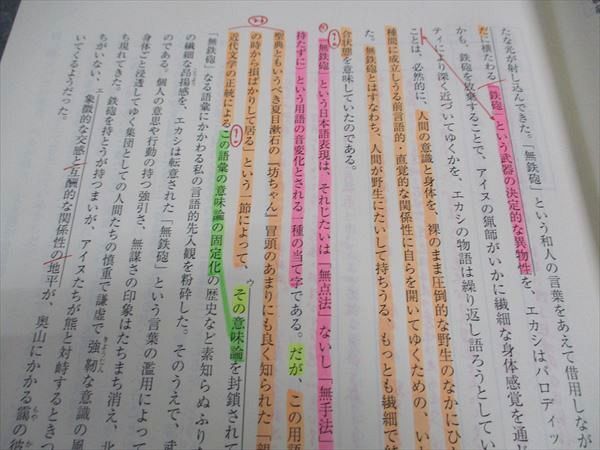 たな光が射し込んできた。「無鉄砲」という和人の言葉をあえて借用しなが
だに横たわる「鉄砲」という武器の決定的な異物性を、エカシはパロディッ
かも、鉄砲を放棄することで、アイヌの猟師がいかに繊細な身体感覚を通
ティにより深く近づいてゆくかを、エカシの物語は繰り返し語ろうとしてい
ことは、必然的に、人間の意識と身体を、裸のまま圧倒的な野生のなかにひ
種間に成立しうる前言語的・直覚的な関係性に自らを開いてゆくための、い
た。無鉄砲とはすなわち、人間が野生にたいして持ちうる、もっとも繊細で
合状態を意味していたのである。
「無鉄砲」という日本語表現は、それじたいは「無点法」ないし「無手法」
持たずに」という用語の音変化とされる一種の当て字である。だが、この用
聖典ともいうべき夏目漱石の『坊ちゃん』冒頭のあまりにも良く知られた「親
の時から損ばかりして居る」という一節によって、その意味論を封鎖されて
近代文学の正統によるこの語彙の意味論の固定化の歴史など素知らぬふり
「無鉄砲」なる語彙にかかわる私の言語的先入観を粉砕した。そのうえで、武
の繊細な昂揚感を、エカシは転意された「無鉄砲」という言葉の濫用によっ
のである。個人の意思や行動の持つ強引さ、無謀さの印象はたちまち消え、北
身体ごと浸透してゆく集団としての人間たちの慎重で謙虚で強靭な意識の風
きょうじん
ち現れてきた。鉄砲を持とうが持つまいが、アイヌたちが熊と対峙するとき
ちがいない、
象徴的な交感と互酬的な関係性の地平が、奥山にかかる靄の彼
もや
いてくるようだった。
ウ